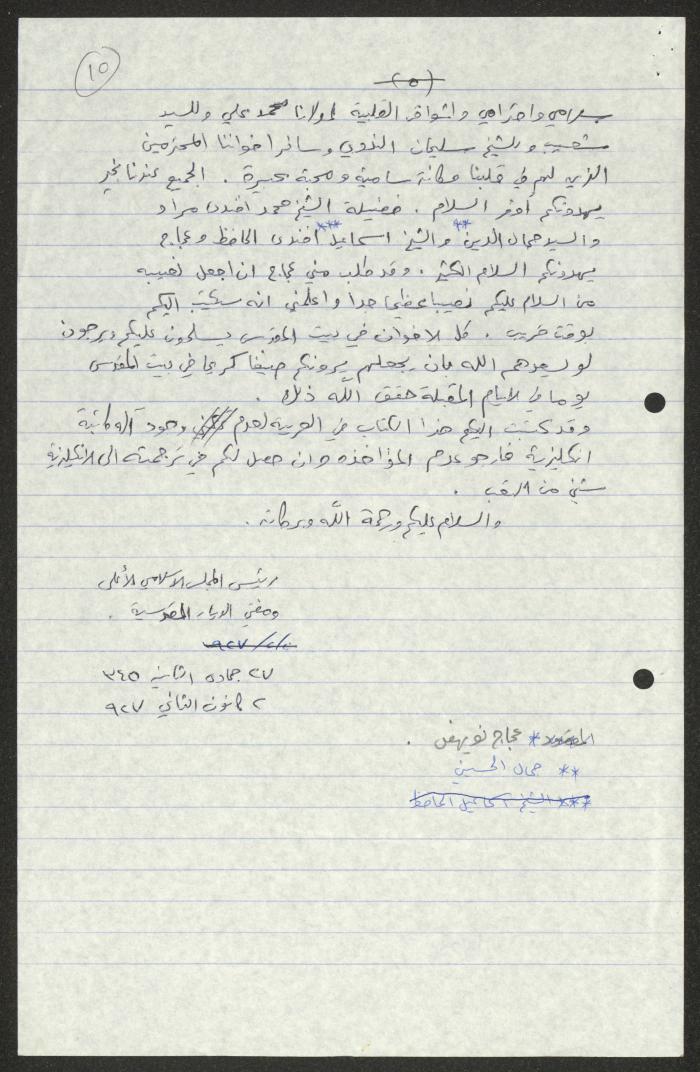 ١٥
(٥)
سلامي واحترامي واشواقي القلبية لمولانا محمد علي وللسيد
شعيب وللشيخ سليمان الندوي وسائر اخواننا المحترمين
الذين لهم في قلبنا مكانة سامية ومحبة كبيرة . الجميع عندنا بخير
يهدونكم اوفر السلام . فضيلة الشيخ محمد افندي مراد
والسيد جمال الدين ** والشيخ اسماعيل *** افندي الحافظ وعجاج
يهدونكم السلام الكثير . وقد طلب مني عجاج ان اجعل نصيبه
من السلام عليكم نصيبا عظيما جدا واعلمني انه سيكتب اليكم
بوقت قريب . كل الاخوان في بيت المقدس يسلمون عليكم ويرجون
لو يسعدهم الله بان يجعلهم يرونكم ضيفا كريما في بيت المقدس
يوما في الايام المقبلة حقق الله ذلك .
وقد كتبت اليكم هذا الكتاب في العربية لعدم وجود آلة كاتبة
انكليزية فارجو عدم المؤاخذة وان حصل لكم في ترجمته الى الانكليزية
شيء من التعب .
والسلام عليكم ورحمة الله وبركاته .
رئيس المجلس الاسلامي الأعلى
ومفتي الديار المقدسية .
٢٧ جمادى الثانية ٣٤٥
٢ كانون الثاني ٩٢٧
المقصود * عجاج نويهض .
** جمال الحسيني
*** الشيخ اسماعيل الحافظ